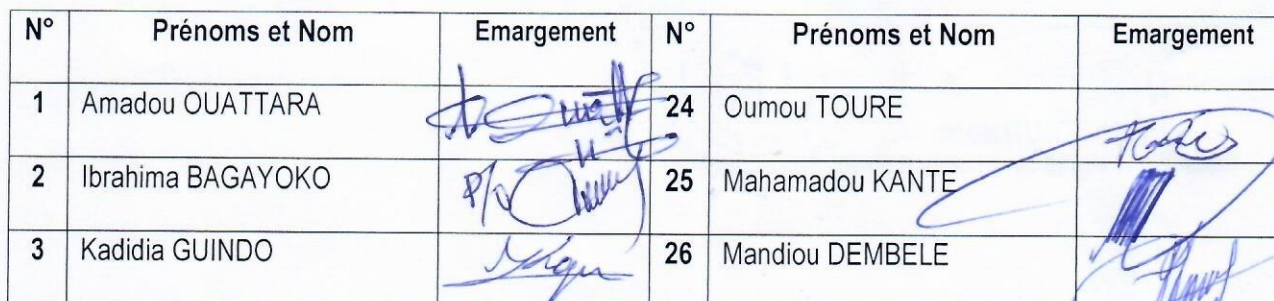 N° Prénoms et Nom Emargement N° Prénoms et Nom Emargement
1 Amadou OUATTARA 24 Oumou TOURE
2 Ibrahima BAGAYOKO P/o 25 Mahamadou KANTE
3 Kadidia GUINDO 26 Mandiou DEMBELE